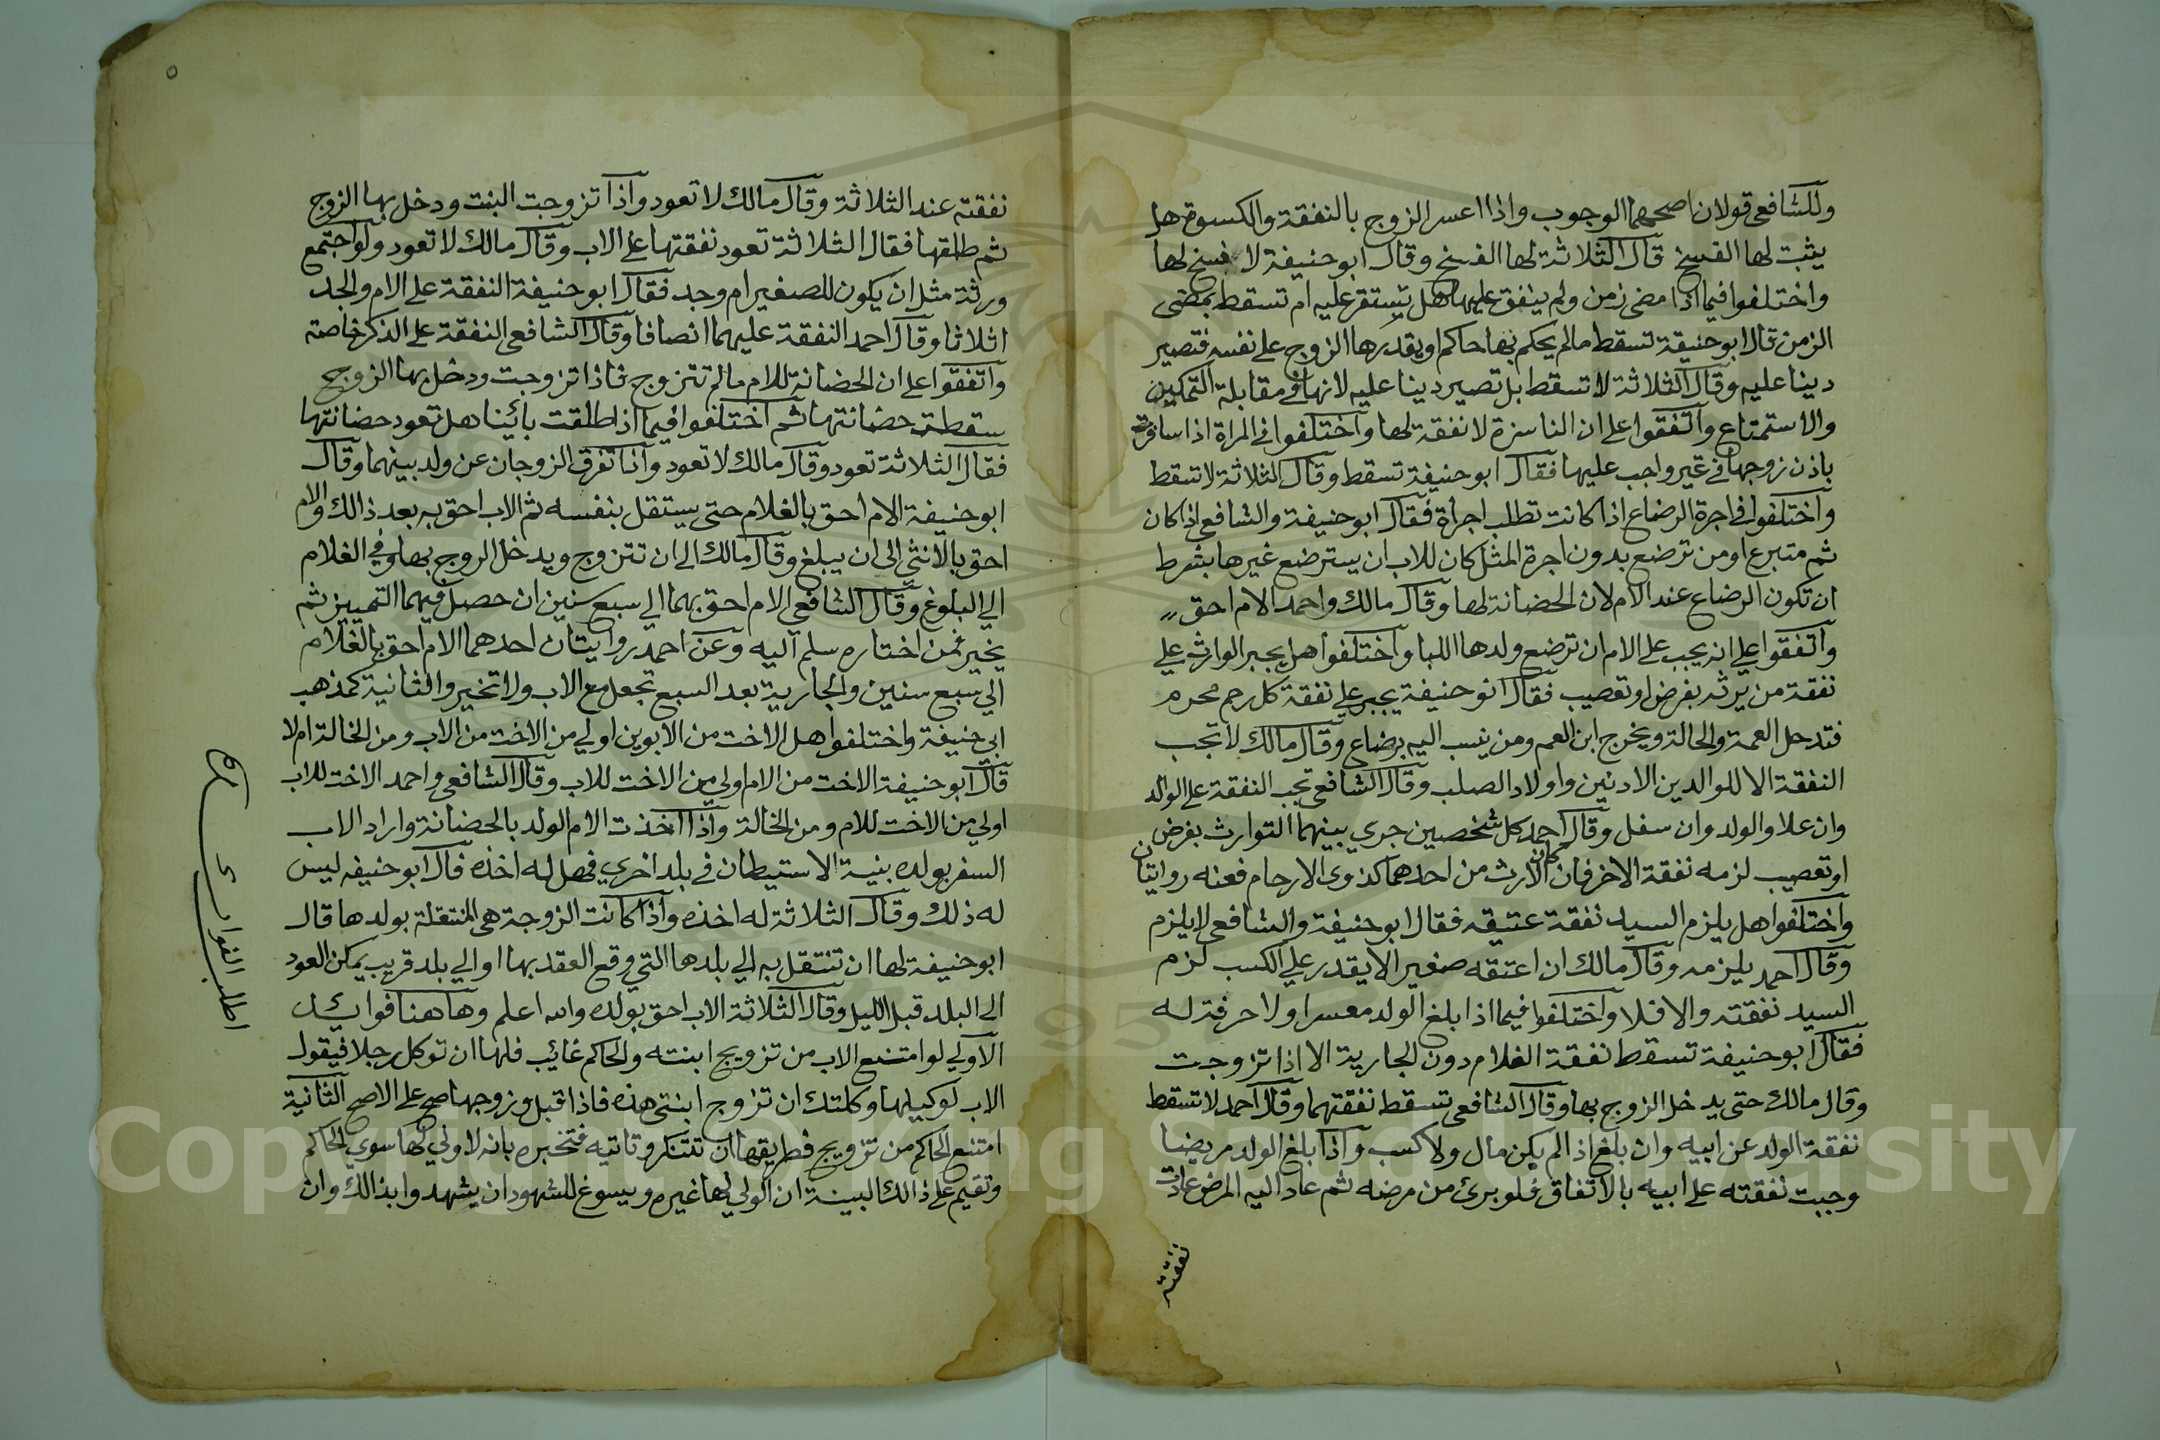 وللشافعي قولان اصحهما الوجوب واذا اعسر الزوج بالنفقة والكسوة هل
يثبت لها الفسخ قال الثلاثة لها الفسخ وقال ابو حنيفة لا فسخ لها
واختلفوا فيما اذا مضى زمن ولم ينفق عليها هل يستقر عليه ام تسقط بمضى
الزمن قال ابو حنيفة تسقط مالم يحكم بها حاكم او يقدرها الزوج على نفسه فتصير
دينا عليه وقال الثلاثة لا تسقط بل تصير دينا عليه لانها في مقابلة التمكين
والاستمتاع واتفقوا على ان الناشزة لا نفقة لها واختلفوا في المراة اذا سافرت
باذن زوجها في غير واجب عليها فقال ابو حنيفة تسقط وقال الثلاثة لا تسقط
واختلفوا في اجرة الرضاع اذا كانت تطلب اجراة فقال ابو حنيفة والشافعي اذا كان
ثم متبرع او من ترضع بدون اجرة المثل كان للاب ان يسترضع غيرها بشرط
ان تكون الرضاع عند الام لان الحضانة لها وقال مالك واحمد الام احق
واتفقوا علي انه يجب على الام ان ترضع ولدها اللبا واختلفوا هل يجبر الوارث علي
نفقة من يرثه بفرض او تعصيب فقال ابو حنيفة يجبر علي نفقة كل رحم محرم
فتدخل العمة والخالة ويخرج ابن العم ومن ينسب اليه برضاع وقال مالك لا تجب
النفقة الا للوالدين الادنين واولاد الصلب وقال الشافعي تجب النفقة على الوالد
وان علا والولد وان سفل وقال احمد كل شخصين جري بينهما التوارث بفرض
او تعصيب لزمه نفقة الاخر فان كان الارث من احدهما كذوى الارحام فعنه روايتان
واختلفوا هل يلزم السيد نفقة عتيقه فقال ابو حنيفة والشافعي لا يلزم
وقال احمد يلزمه وقال مالك ان اعتقه صغيرا لا يقدر علي الكسب لزم
السيد نفقته والا فلا واختلفوا فيما اذا بلغ الولد معسرا ولا حرفة له
فقال ابو حنيفة تسقط نفقة الغلام دون الجارية الا اذا تزوجت
وقال مالك حتى يدخل الزوج بها وقال الشافعي تسقط نفقتهما وقال احمد لا تسقط
نفقة الولد عن ابيه وان بلغ اذ الم يكن مال ولا كسب واذا بلغ الولد مريضا
وجبت نفقته على ابيه بالاتفاق فلو برئ من مرضه ثم عاد اليه المرض عادت
نفقته
نفقته عند الثلاثة وقال مالك لا تعود واذا تزوجت البنت ودخل بها الزوج
ثم طلقها فقال الثلاثة تعود نفقتها على الاب وقال مالك لا تعود ولو اجتمع
ورثة مثل ان يكون للصغير ام وجد فقال ابو حنيفة النفقة على الام والجد
اثلاثا وقال احمد النفقة عليهما انصافا وقال الشافعي النفقة على الذكر خاصة
واتفقوا على ان الحضانة للام مالم تتزوج فاذا تزوجت ودخل بها الزوج
سقطت حضانتها ثم اختلفوا فيما اذا طلقت بائنا هل تعود حضانتها
فقال الثلاثة تعود وقال مالك لا تعود واذا تفرق الزوجان عن ولد بينهما وقال
ابو حنيفة الام احق بالغلام حتى يستقل بنفسه ثم الاب احق به بعد ذالك والام
احق بالانثي الى ان يبلغ وقال مالك الى ان تتزوج ويدخل الزوج بها وفي الغلام
الي البلوغ وقال الشافعي الام احق بهما الي سبع سنين ان حصل فيهما التمييز ثم
يخير فمن اختاره سلم اليه وعن احمد روايتان احدهما الام احق بالغلام
الي سبع سنين والجارية بعد السبع تجعل مع الاب ولا تخير والثانية كمذهب
ابي حنيفة واختلفوا هل الاخت من الابوين اولي من الاخت من الاب ومن الخالة ام لا
قال ابو حنيفة الاخت من الام اولي من الاخت للاب وقال الشافعي واحمد الاخت للاب
اولي من الاخت للام ومن الخالة واذا اخذت الام الولد بالحضانة واراد الاب
السفر بولده بنية الاستيطان في بلد اخري فهل له اخذه قال ابو حنيفه ليس
له ذلك وقال الثلاثة له اخذه واذا كانت الزوجة هي المنتقلة بولدها قال
ابو حنيفة لها ان تنتقل به الي بلدها التي وقع العقد بها او الي بلد قريب يمكن العود
الى البلد قبل الليل وقال الثلاثة الاب احق بولده والله اعلم وها هنا فوايد
الاولي لو امتنع الاب من تزويج ابنته والحاكم غائب فلها ان توكل رجلا فيقول
الاب لوكيلها وكلتك ان تزوج ابنتي هذه فاذا قبل وزوجها صح على الاصح الثانية
امتنع الحاكم من تزويج فطريقها ان تتنكر وتاتيه فتخبره بانه لا ولي لها سوي الحاكم
وتقيم على ذالك البينة ان الولي لها غيره ويسوغ للشهود ان يشهدوا بذالك وان
اطلب الفوايد